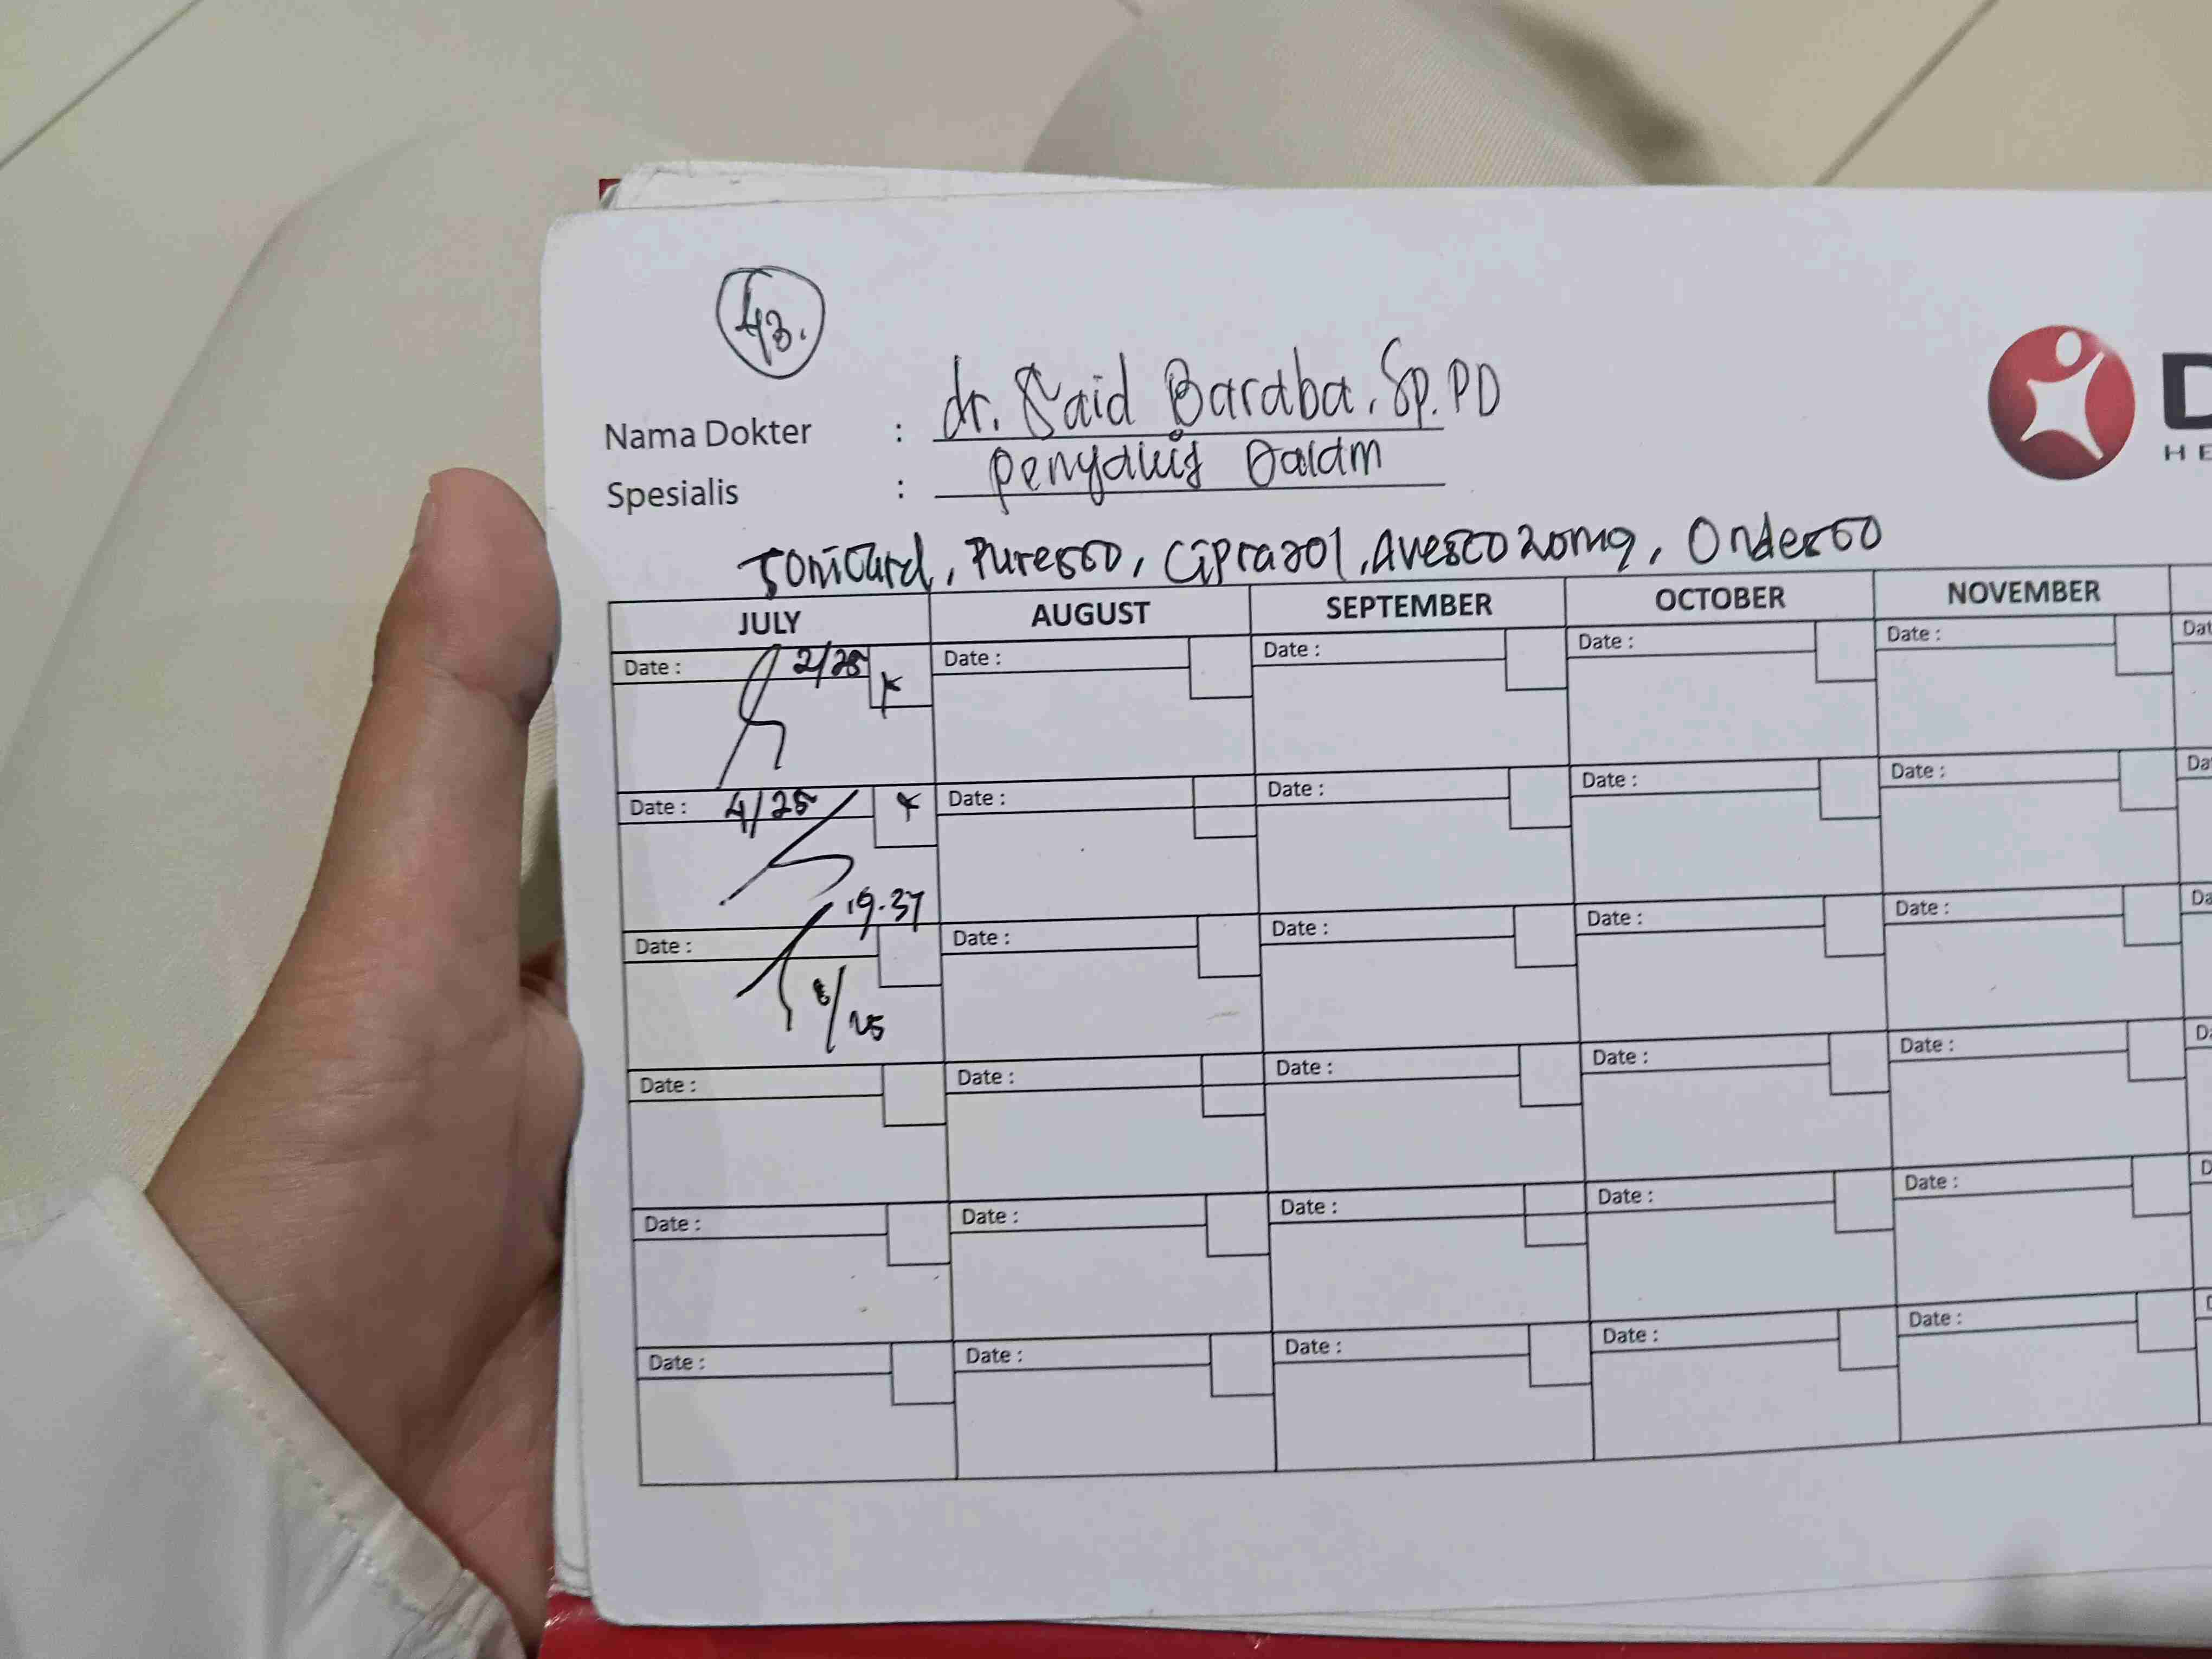 43.
Nama Dokter : dr. Said Baraba. Sp.PD
Spesialis : Penyakit Dalam
Jonicard, Puresco, Ciprazol, Avesco 20mg, Ondesco
JULY AUGUST SEPTEMBER OCTOBER NOVEMBER
Date : 2/25 Date : Date : Date : Date : Dat
Date : 4/25 Date : Date : Date : Date : Da
19.37
Date : Date : Date : Date : Date : Da
8/25
Date : Date : Date : Date : Date : D
Date : Date : Date : Date : Date : D
Date : Date : Date : Date : Date :
D
HE